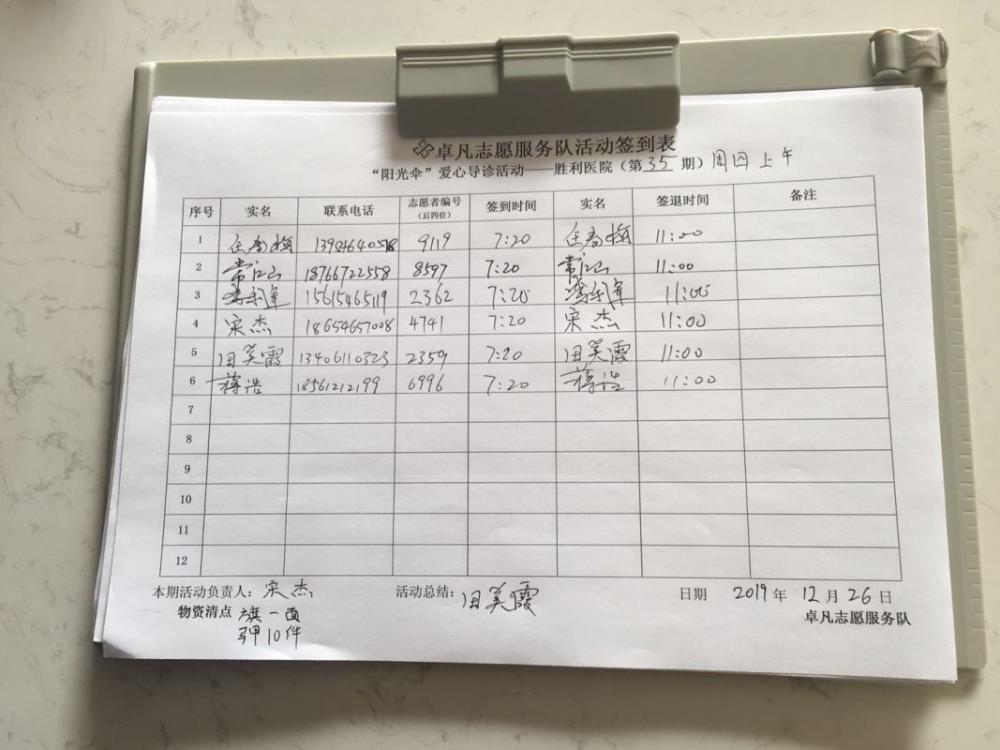 卓凡志愿服务队活动签到表
“阳光伞”爱心导诊活动——胜利医院（第35期）周四上午
序号 实名 联系电话 志愿者编号（后四位） 签到时间 实名 签退时间 备注
1 9119 7:20 11:00
2 常江山 18766722558 8597 7:20 常江山 11:00
3 15615465119 2362 7:20 11:00
4 宋杰 18654657008 4741 7:20 宋杰 11:00
5 田美霞 13406110323 2359 7:20 田美霞 11:00
6 蒋浩 18561212199 6996 7:20 蒋浩 11:00
7
8
9
10
11
12
本期活动负责人：宋杰 活动总结：田美霞 日期 2019年12月26日
物资清点 旗一面 卓凡志愿服务队
10件